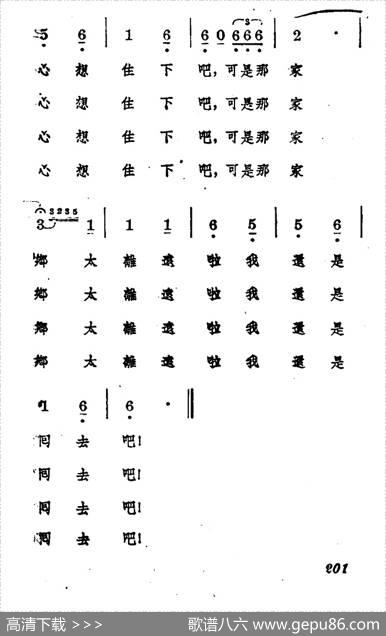 5 6 | 1 6 | 6 0 6 6 6 | 2 · |
心 想 住 下 吧，可是那 家
心 想 住 下 吧，可是那 家
心 想 住 下 吧，可是那 家
心 想 住 下 吧，可是那 家
3 3235 1 | 1 1 | 6 5 | 5 6 |
鄉 太 離 遠 啦 我 還 是
鄉 太 離 遠 啦 我 還 是
鄉 太 離 遠 啦 我 還 是
鄉 太 離 遠 啦 我 還 是
1 6 | 6 · ‖
囘 去 吧！
囘 去 吧！
囘 去 吧！
囘 去 吧！
201
高清下载 >>>
歌谱八六 www.gepu86.com